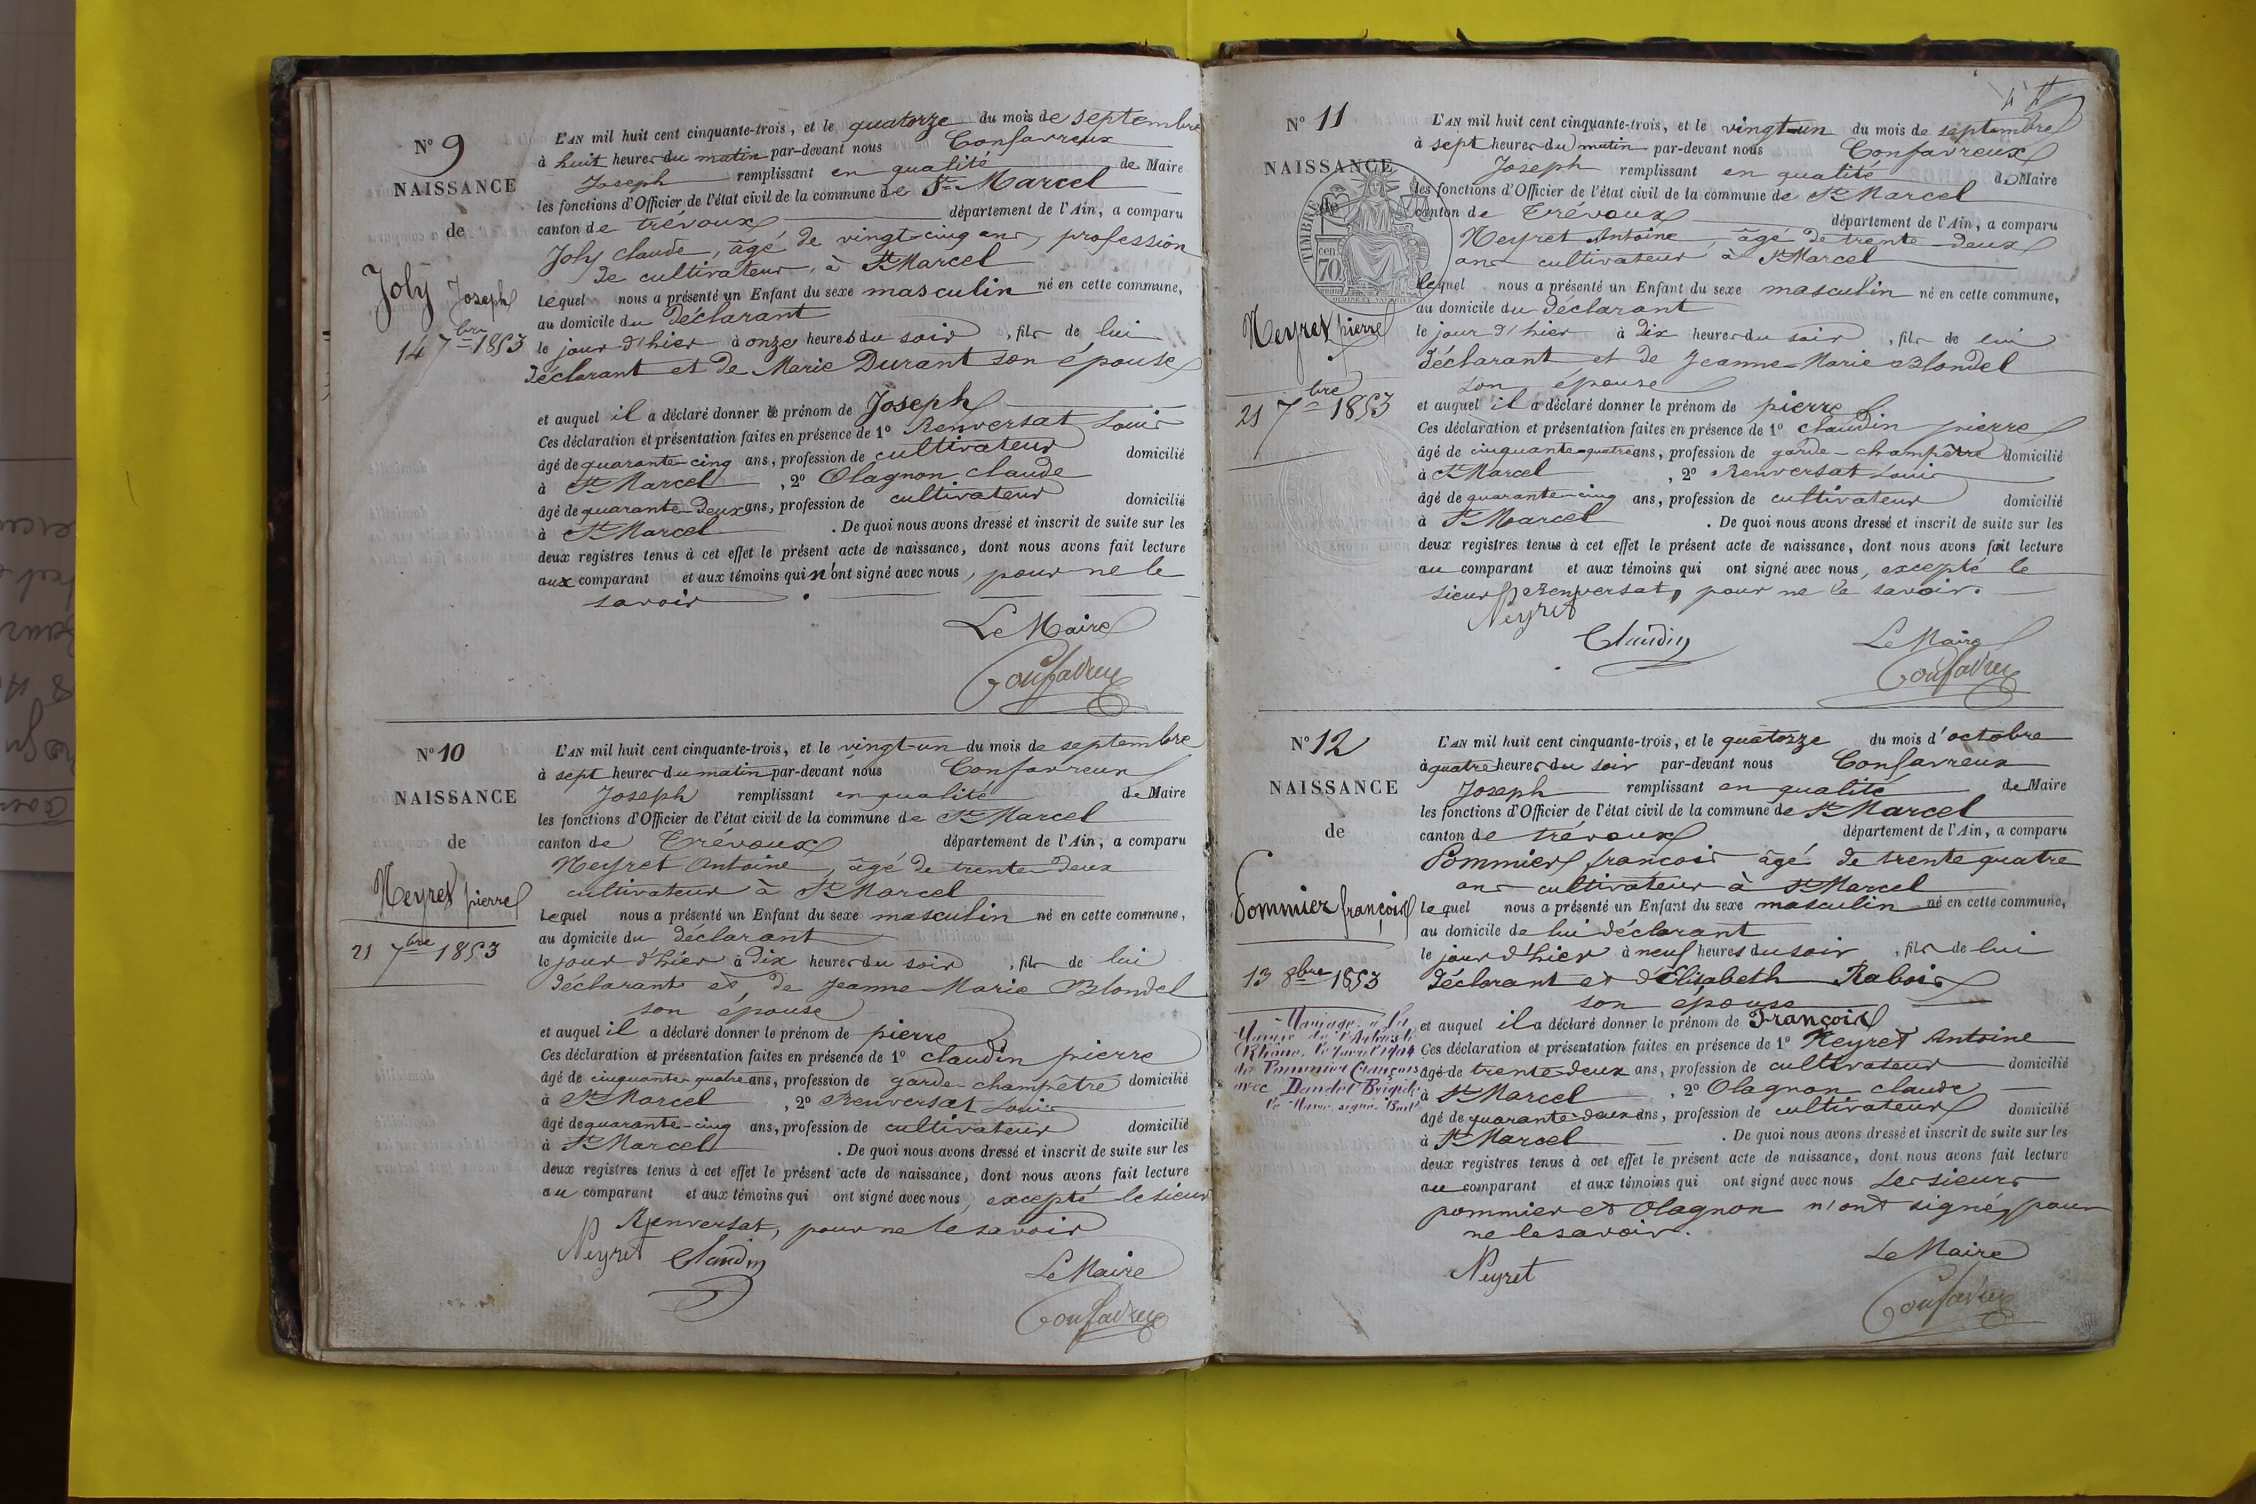 N° 9
NAISSANCE
de
Joly Joseph
14 7bre 1853
L'AN mil huit cent cinquante-trois, et le quatorze du mois de septembre
à huit heures du matin par-devant nous Confavreux
Joseph remplissant en qualité de Maire
les fonctions d'Officier de l'état civil de la commune de St Marcel
canton de trévoux département de l'Ain, a comparu
Joly claude, âgé de vingt-cinq ans, profession
de cultivateur, à St Marcel
Lequel nous a présenté un Enfant du sexe masculin né en cette commune,
au domicile du déclarant
le jour d'hier à onze heures du soir, fils de lui
déclarant et de Marie Durant son épouse
et auquel il a déclaré donner le prénom de Joseph
Ces déclaration et présentation faites en présence de 1° Renversat Louis
âgé de quarante-cinq ans, profession de cultivateur domicilié
à St Marcel, 2° Olagnon claude
âgé de quarante-deux ans, profession de cultivateur domicilié
à St Marcel. De quoi nous avons dressé et inscrit de suite sur les
deux registres tenus à cet effet le présent acte de naissance, dont nous avons fait lecture
aux comparant et aux témoins qui n'ont signé avec nous, pour ne le
savoir.
Le Maire
Confavreux
N° 10
NAISSANCE
de
Neyret pierre
21 7bre 1853
L'AN mil huit cent cinquante-trois, et le vingt-un du mois de septembre
à sept heures du matin par-devant nous Confavreux
Joseph remplissant en qualité de Maire
les fonctions d'Officier de l'état civil de la commune de St Marcel
canton de Trévoux département de l'Ain, a comparu
Neyret Antoine, âgé de trente-deux
cultivateur à St Marcel
Lequel nous a présenté un Enfant du sexe masculin né en cette commune,
au domicile du déclarant
le jour d'hier à dix heures du soir, fils de lui
déclarant et de Jeanne-Marie Blondel
son épouse
et auquel il a déclaré donner le prénom de pierre
Ces déclaration et présentation faites en présence de 1° claudin pierre
âgé de cinquante-quatre ans, profession de garde-champêtre domicilié
à St Marcel, 2° Renversat Louis
âgé de quarante-cinq ans, profession de cultivateur domicilié
à St Marcel. De quoi nous avons dressé et inscrit de suite sur les
deux registres tenus à cet effet le présent acte de naissance, dont nous avons fait lecture
au comparant et aux témoins qui ont signé avec nous, excepté le sieur
Renversat, pour ne le savoir
Neyret Claudin
Le Maire
Confavreux
N° 11
NAISSANCE
de
TIMBRE
70 cen
Neyret pierre
21 7bre 1853
L'AN mil huit cent cinquante-trois, et le vingt-un du mois de septembre
à sept heures du matin par-devant nous Confavreux
Joseph remplissant en qualité de Maire
les fonctions d'Officier de l'état civil de la commune de St Marcel
canton de Trévoux département de l'Ain, a comparu
Neyret Antoine, âgé de trente-deux
ans cultivateur à St Marcel
Lequel nous a présenté un Enfant du sexe masculin né en cette commune,
au domicile du déclarant
le jour d'hier à dix heures du soir, fils de lui
déclarant et de Jeanne-Marie Blondel
son épouse
et auquel il a déclaré donner le prénom de pierre
Ces déclaration et présentation faites en présence de 1° claudin pierre
âgé de cinquante-quatre ans, profession de garde-champêtre domicilié
à St Marcel, 2° Renversat Louis
âgé de quarante-cinq ans, profession de cultivateur domicilié
à St Marcel. De quoi nous avons dressé et inscrit de suite sur les
deux registres tenus à cet effet le présent acte de naissance, dont nous avons fait lecture
au comparant et aux témoins qui ont signé avec nous, excepté le
sieur Renversat, pour ne le savoir.
Neyret
Claudin
Le Maire
Confavreux
N° 12
NAISSANCE
de
Pommier françois
13 8bre 1853
Mariage à la
Mairie de l'Arbresle
(Rhône) le 7 avril 1904
de Pommier François
avec Dandel Brigitte
le Maire signé
L'AN mil huit cent cinquante-trois, et le quatorze du mois d'octobre
à quatre heures du soir par-devant nous Confavreux
Joseph remplissant en qualité de Maire
les fonctions d'Officier de l'état civil de la commune de St Marcel
canton de trévoux département de l'Ain, a comparu
Pommier françois âgé de trente quatre
ans cultivateur à St Marcel
Lequel nous a présenté un Enfant du sexe masculin né en cette commune,
au domicile de lui déclarant
le jour d'hier à neuf heures du soir, fils de lui
déclarant et d'Elisabeth Rabois
son épouse
et auquel il a déclaré donner le prénom de François
Ces déclaration et présentation faites en présence de 1° Neyret Antoine
âgé de trente-deux ans, profession de cultivateur domicilié
à St Marcel, 2° Olagnon claude
âgé de quarante-deux ans, profession de cultivateur domicilié
à St Marcel. De quoi nous avons dressé et inscrit de suite sur les
deux registres tenus à cet effet le présent acte de naissance, dont nous avons fait lecture
au comparant et aux témoins qui ont signé avec nous Les sieurs
pommier et Olagnon n'ont signé, pour
ne le savoir.
Neyret
Le Maire
Confavreux